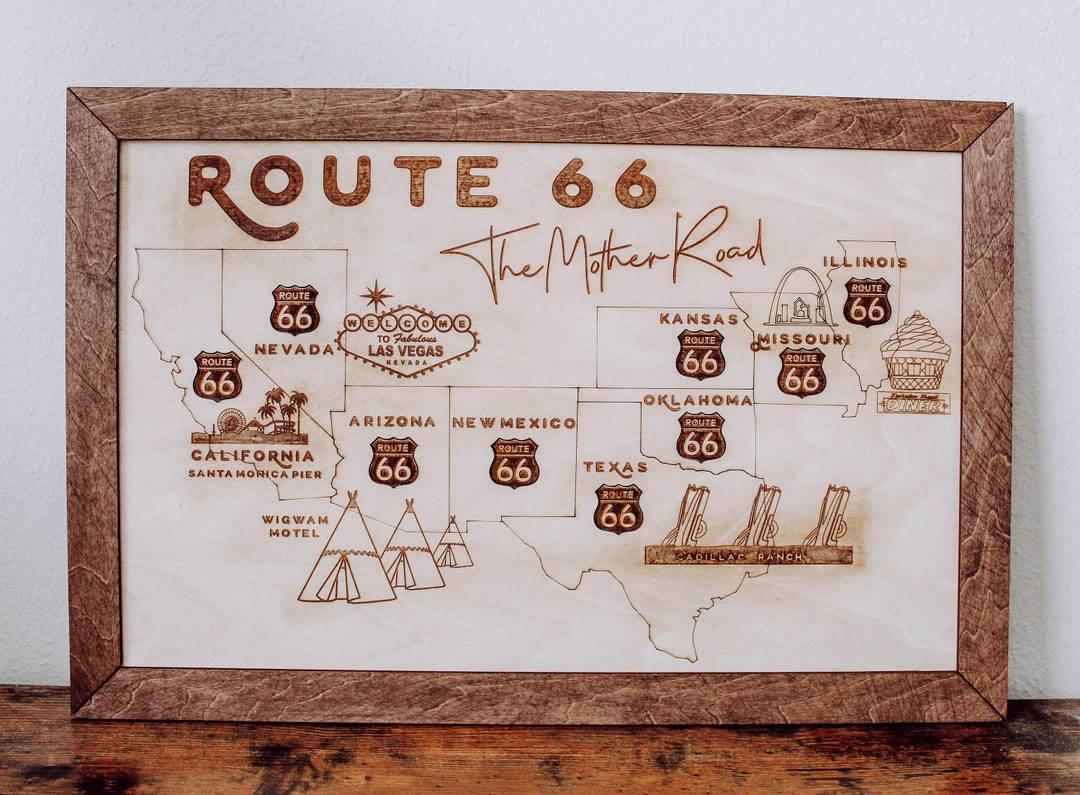 ROUTE 66
The Mother Road
ILLINOIS
ROUTE
66
ROUTE
66
NEVADA
WELCOME
TO Fabulous
LAS VEGAS
NEVADA
KANSAS
ROUTE
66
MISSOURI
ROUTE
66
ROUTE
66
CALIFORNIA
SANTA MONICA PIER
ARIZONA
ROUTE
66
NEW MEXICO
ROUTE
66
OKLAHOMA
ROUTE
66
TEXAS
ROUTE
66
DINER
WIGWAM
MOTEL
CADILLAC RANCH